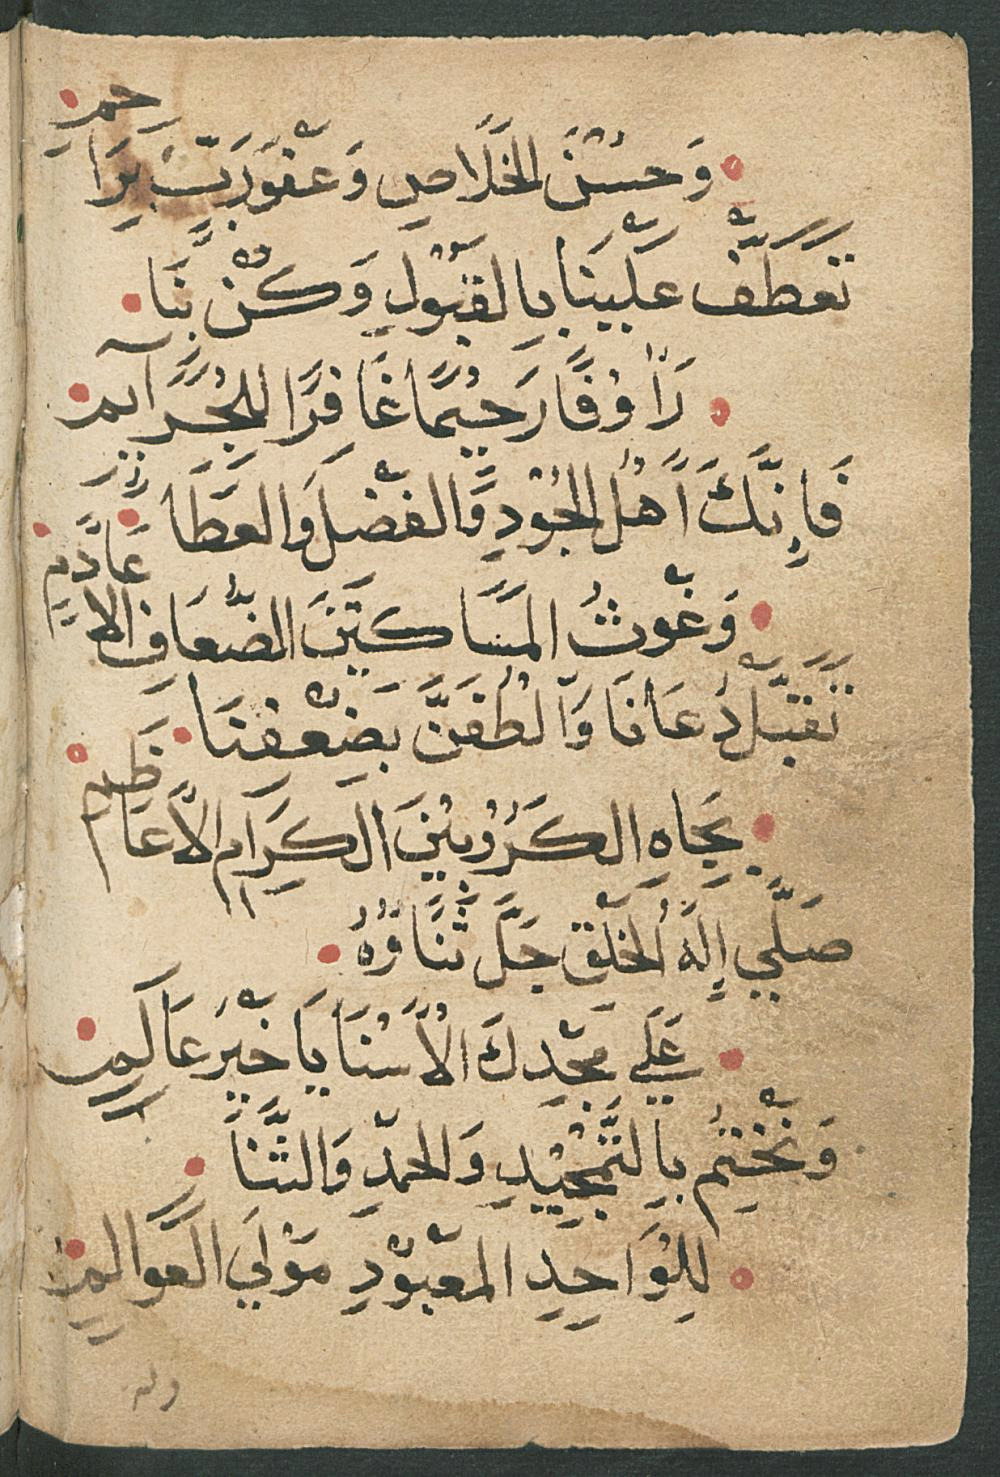 وَحُسْنَ الخَلَاصِ وَعَفْوَرَبٍّ بَرَا حمٍ
تَعَطَّفْ عَلَيْنَا بِالقَبُوْلِ وَكُنْ بِنَا
رَاُوْفًا رَحِيْمًا غَافِرًا لِلْجُرَآئمِ
فَإِنَّكَ اَهْلُ الجُوْدِ وَالفَضْلِ وَالعَطَا
وَغَوْثُ المَسَاكِيْنَ الضِّعَافِ الاعَادِمِ
تَقَبَّلْ دُعَانَا وَالْطُفَنَّ بِضَعْفِنَا
بِجَاهِ الكَرُوْبِيْنَ الكِرَامِ الاَعَاظِمِ
صَلِّي إِلَهَ الخَلْقِ جَلَّ ثَنَاؤُهُ
عَلَي مَجْدِكَ الاَسْنَا يَا خَيْرَ عَالَمِ
وَنَخْتِمُ بِالتَّمْجِيْدِ وَالحَمْدِ وَالثَّنَا
لِلْوَاحِدِ المَعْبُوْدِ مَوْلَي العَوَالِمِ
وله